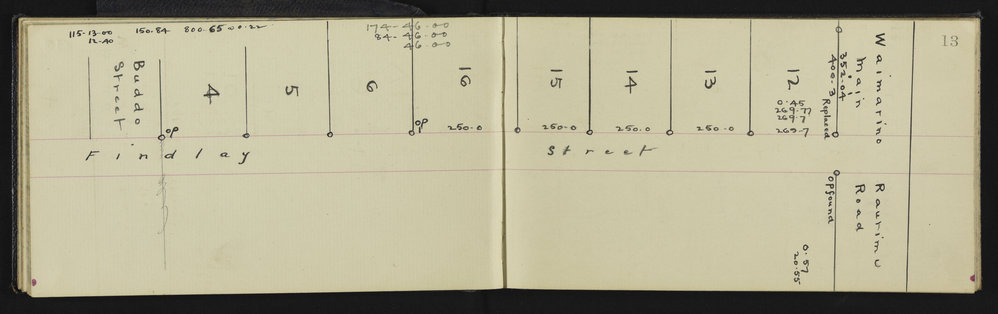 13
115-13-00 150.84 800.65
12.40
174-46-00
84-46-00
46-00
Buddo
Street
4
5
6
16
15
14
13
12
0.45
269.77
269.7
269.7
op
op
250.0
250.0
250.0
250.0
352.04
400.3 Replaced
Waimarino
Main
Raurimu
Road
Findlay Street
op found
0.57
20.55